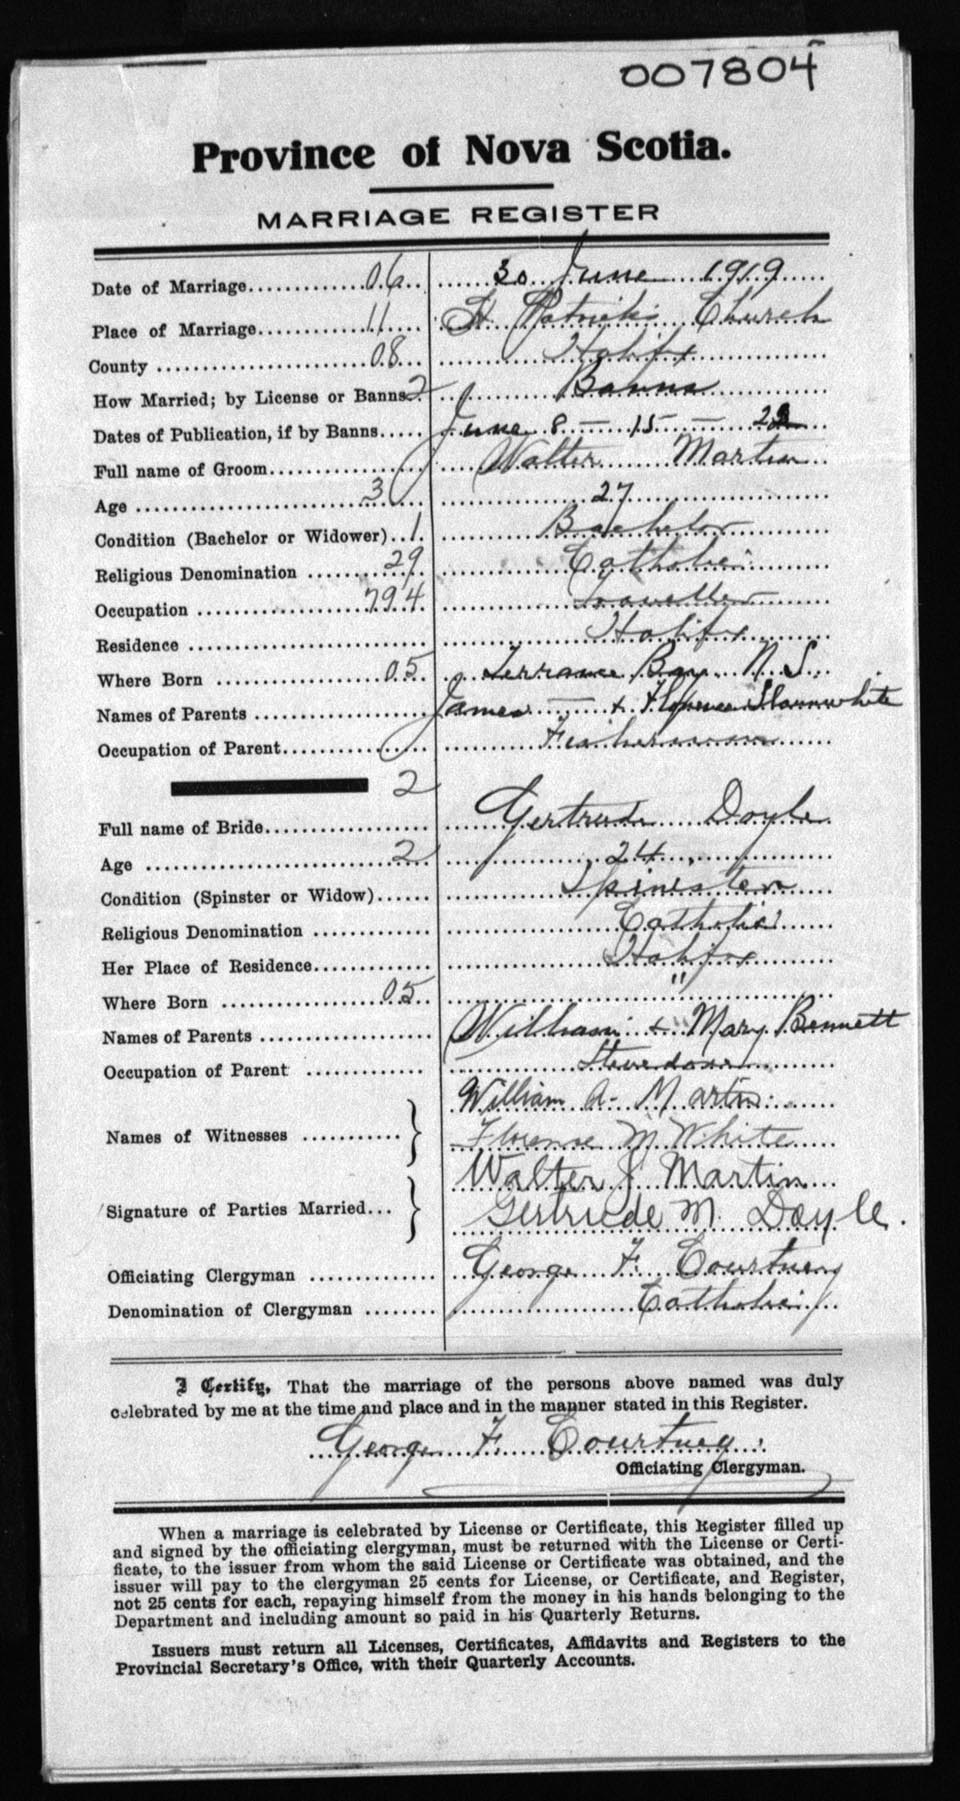 007804
Province of Nova Scotia.
MARRIAGE REGISTER
Date of Marriage 06 30 June 1919
Place of Marriage 11 St. Patrick's Church
County 08 Halifax
How Married; by License or Banns 2 Banns
Dates of Publication, if by Banns June 8 - 15 - 22
Full name of Groom Walter Martin
Age 3 27
Condition (Bachelor or Widower) 1 Bachelor
Religious Denomination 29 Catholic
Occupation 794 Traveller
Residence Halifax
Where Born 05 Terrance Bay N.S.
Names of Parents James — + Florence Slaunwhite
Occupation of Parent Fisherman
2
Full name of Bride Gertrude Doyle
Age 2 24
Condition (Spinster or Widow) Spinster
Religious Denomination Catholic
Her Place of Residence Halifax
Where Born 05 "
Names of Parents William + Mary Bennett
Occupation of Parent Stevedore
Names of Witnesses William A. Martin
Florence M. White
Signature of Parties Married Walter J Martin
Gertrude M. Doyle.
Officiating Clergyman George F. Courtney
Denomination of Clergyman Catholic
I Certify, That the marriage of the persons above named was duly
celebrated by me at the time and place and in the manner stated in this Register.
George F. Courtney
Officiating Clergyman.
When a marriage is celebrated by License or Certificate, this Register filled up
and signed by the officiating clergyman, must be returned with the License or Certi-
ficate, to the issuer from whom the said License or Certificate was obtained, and the
issuer will pay to the clergyman 25 cents for License, or Certificate, and Register,
not 25 cents for each, repaying himself from the money in his hands belonging to the
Department and including amount so paid in his Quarterly Returns.
Issuers must return all Licenses, Certificates, Affidavits and Registers to the
Provincial Secretary's Office, with their Quarterly Accounts.